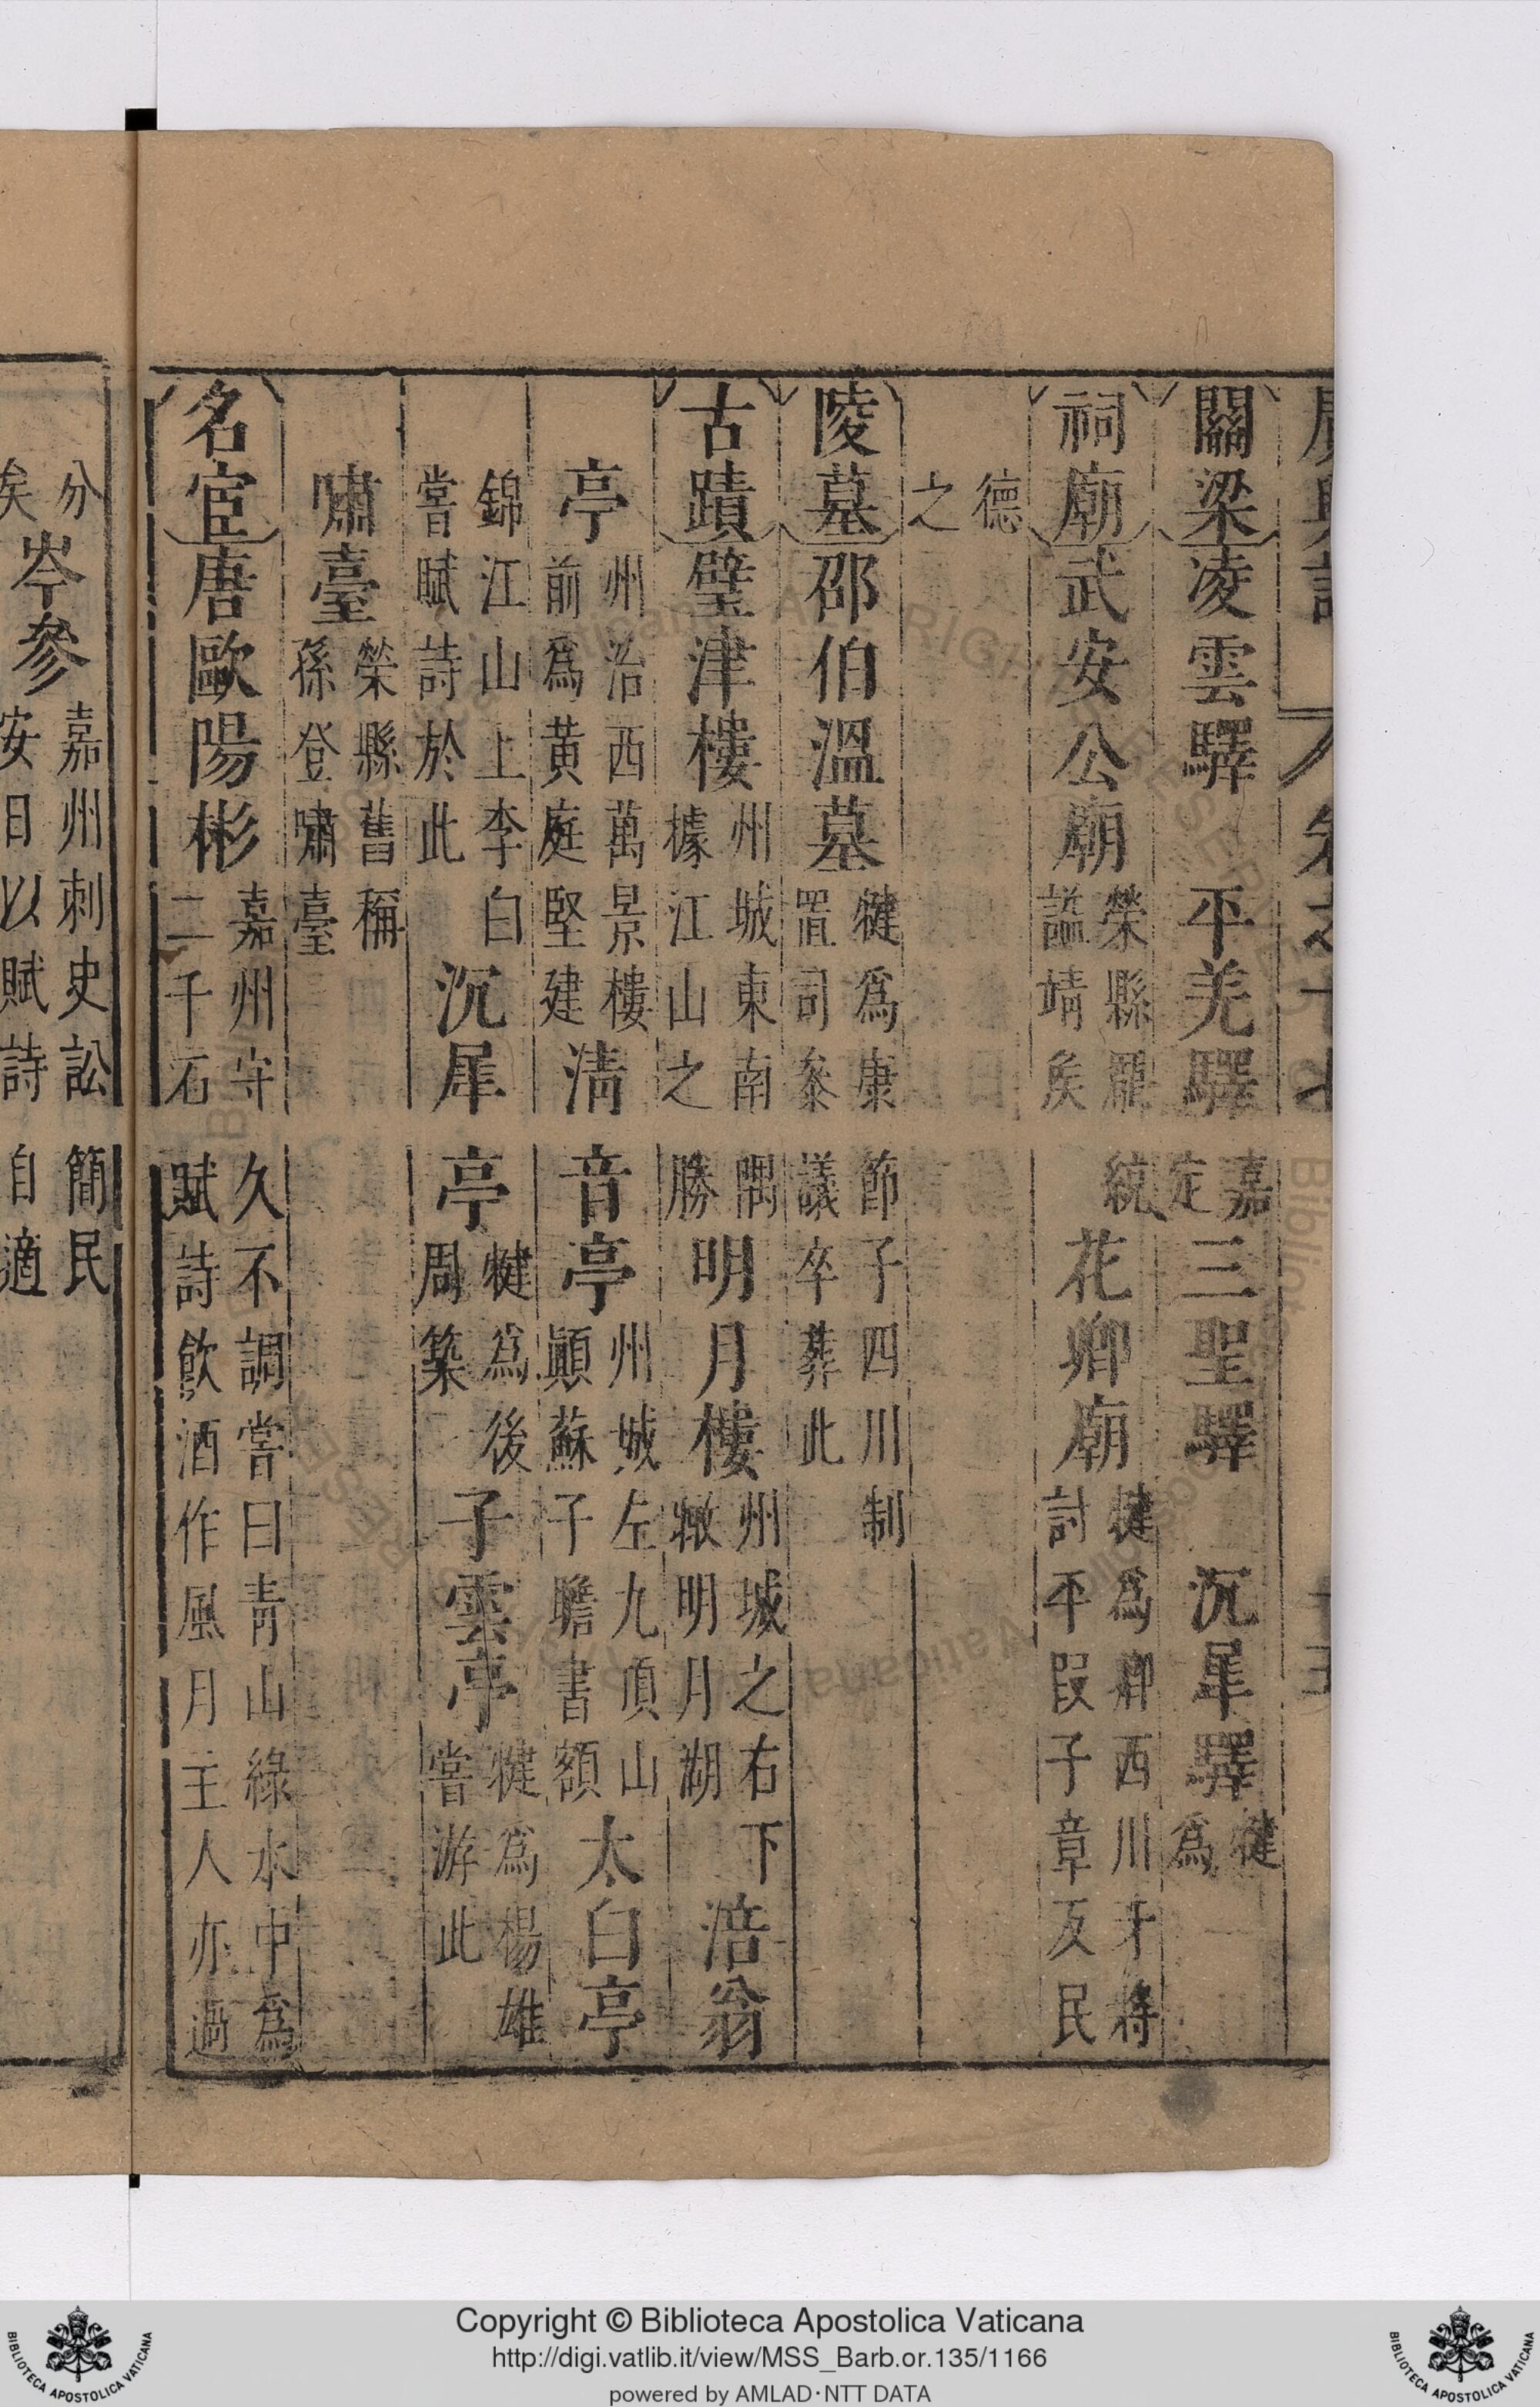 關梁凌雲驛 平羌驛嘉定三聖驛 沉犀驛犍為
祠廟武安公廟榮縣龍謚靖矦統花卿廟犍爲鄉西川牙將討平叚子章及民
德之
陵墓邵伯溫墓犍爲康節子四川制置司叅議卒葬此
古蹟璧津樓州城東南隅據江山之勝明月樓州城之右下瞰明月湖涪翁
亭州治西萬景樓前爲黃庭堅建淸音亭州城左九頂山顚蘇子瞻書額太白亭
錦江山上李白嘗賦詩於此沉犀亭犍爲後周築子雲亭犍爲楊雄嘗游此
嘯臺榮縣舊稱孫登嘯臺
名宦唐歐陽彬嘉州守久不調嘗曰靑山綠水中爲二千石賦詩飮酒作風月主人亦過
分矦岑參嘉州刺史訟簡民安日以賦詩自適
Copyright © Biblioteca Apostolica Vaticana
http://digi.vatlib.it/view/MSS_Barb.or.135/1166
powered by AMLAD·NTT DATA
BIBLIOTECA APOSTOLICA VATICANA
BIBLIOTECA APOSTOLICA VATICANA